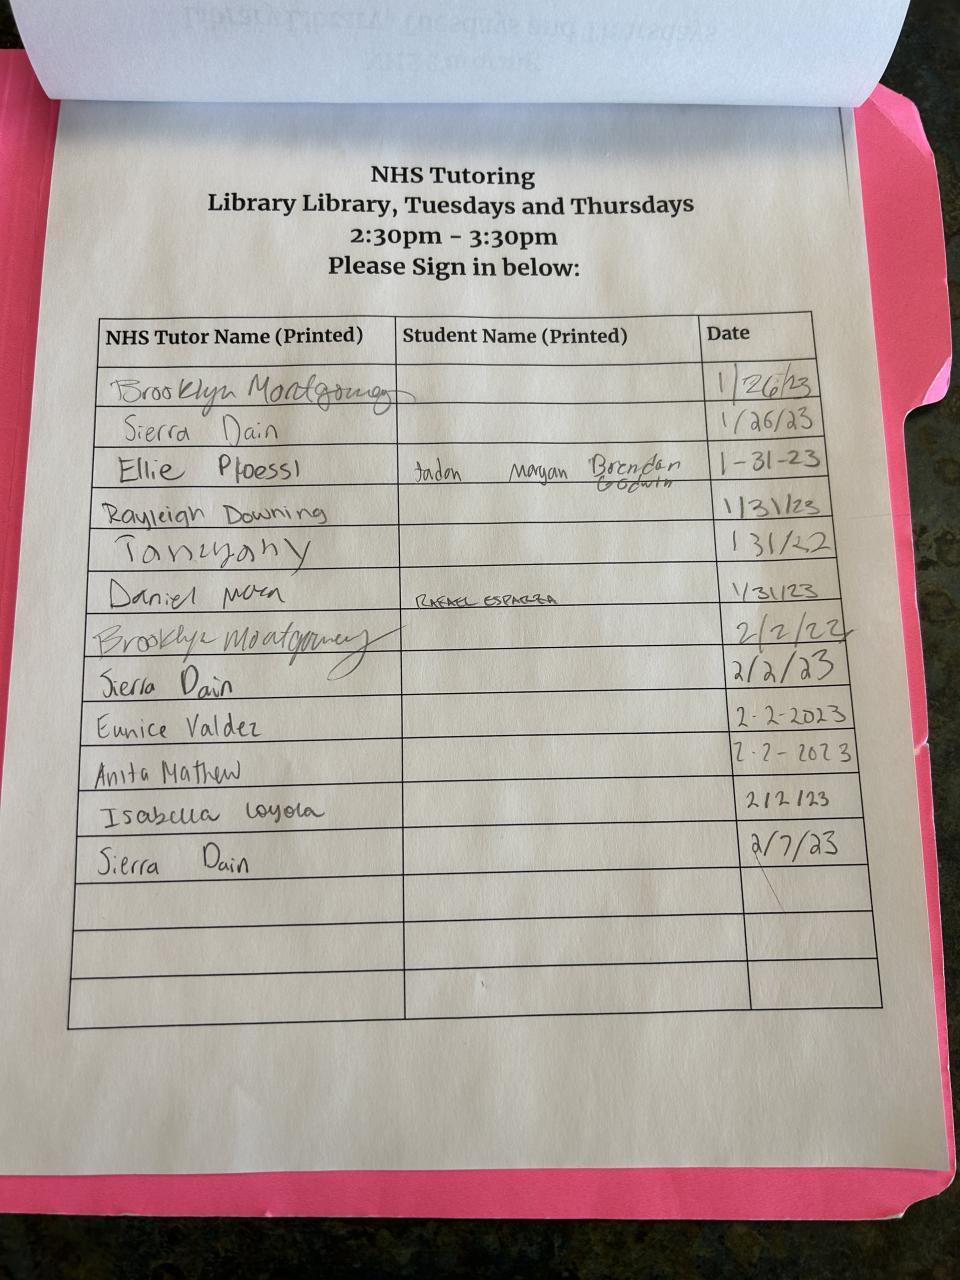 NHS Tutoring
Library Library, Tuesdays and Thursdays
2:30pm – 3:30pm
Please Sign in below:
NHS Tutor Name (Printed) Student Name (Printed) Date
Brooklyn Montgomey 1/26/23
Sierra Dain 1/26/23
Ellie Ploessl Jadon Morgan Brendan Godwin 1-31-23
Rayleigh Downing 1/31/23
1 31/22
Daniel RAFAEL ESPARZA 1/31/23
Brooklyn Montgomey 2/2/22
Sierra Dain 2/2/23
Eunice Valdez 2-2-2023
Anita Mathew 2-2-2023
Isabella Loyola 2/2/23
Sierra Dain 2/7/23